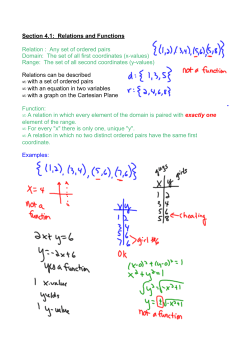 Section 4.1: Relations and Functions
{(1,2),(3,4),(5,6),(5,8)}
Relation : Any set of ordered pairs
not a function
Domain: The set of all first coordinates (x-values)
Range: The set of all second coordinates (y-values)
Relations can be described
d: {1,3,5}
with a set of ordered pairs
with an equation in two variables
r: {2,4,6,8}
with a graph on the Cartesian Plane
Function:
A relation in which every element of the domain is paired with exactly one
element of the range.
For every "x" there is only one, unique "y".
A relation in which no two distinct ordered pairs have the same first
coordinate
Examples:
{(1,2),(3,4),(5,6),(7,6)}
guys
girls
x y
1 2
3 4
5 6
5 8 ← cheating
x = 4
not a
function
x y
1 2
3 4
5 6
7 6
ok
2x + y = 6
y = -2x + 6
yes a function
1 x-value
yields
1 y-value
(x-0)² + (y-0)² = 1
x² + y² = 1
√y² = √-x²+1
y = ±√-x²+1
not a function